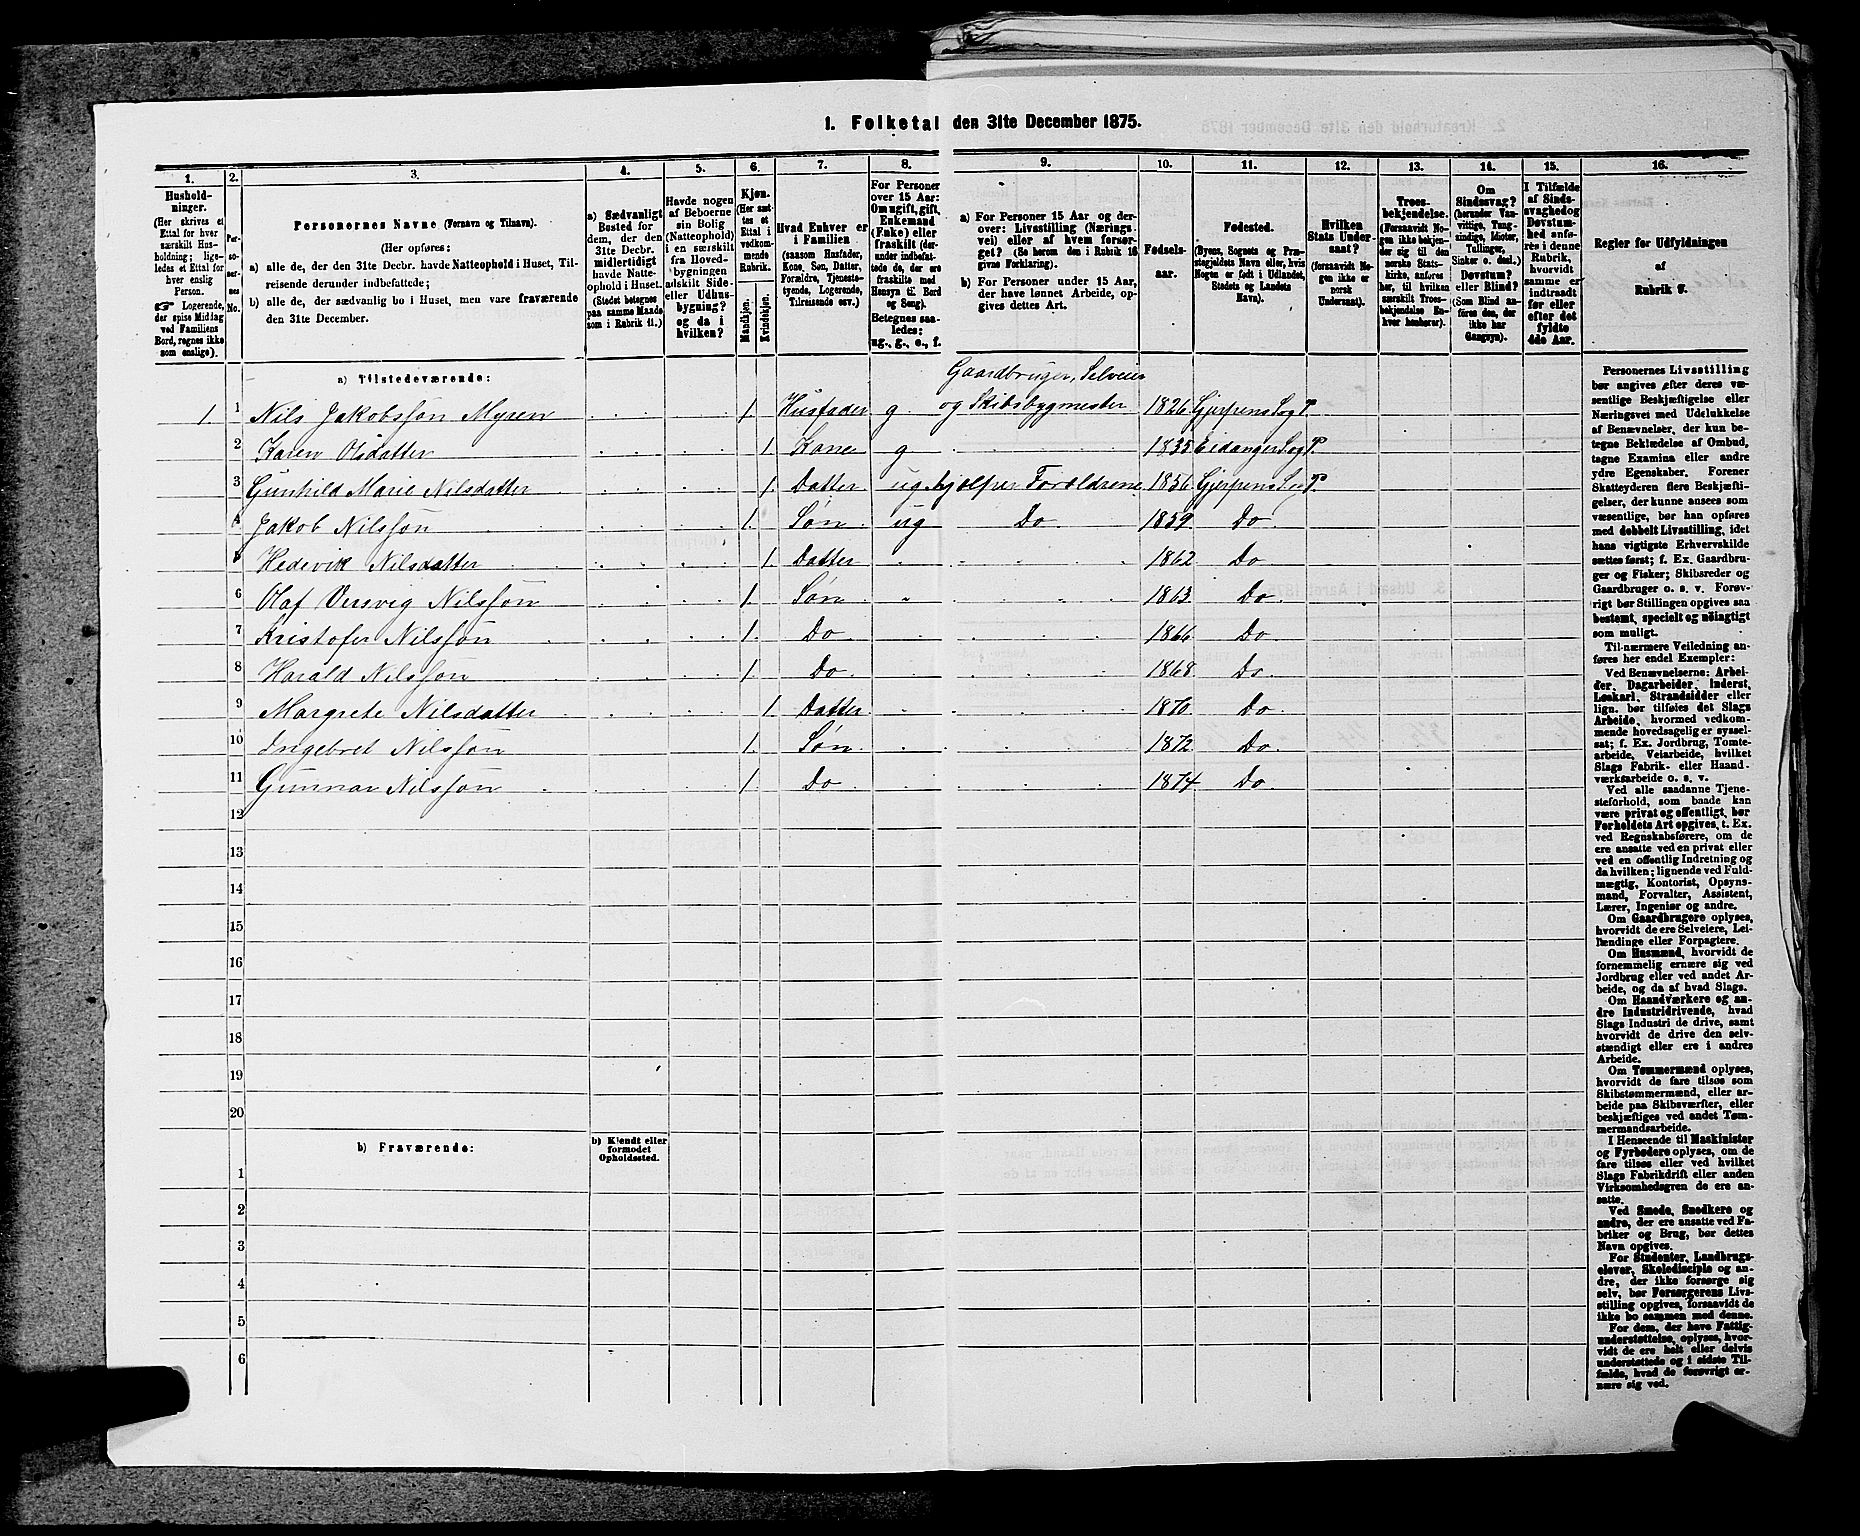 1. Folketal den 31te December 1875.
1. 2. 3. 4. 5. 6. 7. 8. 9. 10. 11. 12. 13. 14. 15. 16.
Husholdninger.
(Her skrives et
Ettal for hver
særskilt Husholdning;
ligeledes et Ettal for
hver enslig
Person.
Logerende,
der spise Middag
ved Familiens
Bord, regnes ikke
som enslige).
Personernes No.
Personernes Navne (Fornavn og Tilnavn).
(Her opføres:
a) alle de, der den 31te Decbr. havde Natteophold i Huset, Tilreisende
derunder indbefattede;
b) alle de, der sædvanlig bo i Huset, men vare fraværende
den 31te December.
a) Sædvanligt
Bosted for
dem, der den
31te Decbr.
midlertidigt
havde Natteophold
i Huset.
(Stedet betegnes
paa samme Maade
som i Rubrik 11.)
Havde nogen
af Beboerne
sin Bolig
(Natteophold)
i en særskilt
fra Hovedbygningen
adskilt Side-
eller Udhusbygning?
og da i
hvilken?
Kjøn.
(Her sættes
et
Ettal i
vedkommende
Rubrik.
Mandkjøn.
Kvindekjøn.
Hvad Enhver er
i Familien
(saasom Husfader,
Kone, Søn, Datter,
Forældre, Tjenestetyende,
Logerende,
Tilreisende osv.)
For Personer
over 15 Aar:
Om ugift, gift,
Enkemand
(Enke) eller
fraskilt (derunder
indbefattede
de, der ere
fraskilte med
Hensyn til Bord
og Seng).
Betegnes saaledes:
ug., g., e., f.
a) For Personer 15 Aar og derover:
Livsstilling (Næringsvei)
eller af hvem forsørget?
(Se herom den i Rubrik 16
givne Forklaring).
b) For Personer under 15 Aar,
der have lønnet Arbeide, opgives
dettes Art.
Fødselsaar.
Fødested.
(Byens, Sognets og Præstegjeldets
Navn eller, hvis
Nogen er født i Udlandet,
Stedets og Landets
Navn).
Hvilken
Stats Undersaat?
(forsaavidt Nogen
ikke er
norsk
Undersaat).
Troesbekjendelse.
(Forsaavidt Nogen
ikke bekjender
sig til den
norske Statskirke,
anføres
her, til hvilken
særskilt Troesbekjendelse
Enhver
henhører).
Om
Sindssvag?
(herunder Vanvittige,
Tungsindige,
Idioter,
Tullinger,
Sinker o. desl.)
Døvstum?
eller Blind?
(Som Blind anføres
den, der
ikke har
Gangsyn).
I Tilfælde
af Sindssvaghed
og
Døvstumhed
anføres
i denne
Rubrik,
hvorvidt
samme er
indtraadt
før eller
efter det
fyldte
4de Aar.
Regler for Udfyldningen
af
Rubrik 9.
a) Tilstedeværende:
Gaardbruger, Selveier
1. 1 Nils Jakobssøn Myren 1 Husfader g og Skibsbygmester 1826 Gjerpens S. og P.
2 Karen Olsdatter 1 Kone g 1835 Eidanger S. og P.
3 Gunhild Marie Nilsdatter 1 Datter ug hjelper Forældrene 1856 Gjerpens S. og P.
4 Jakob Nilssøn 1 Søn ug Do 1859 Do
5 Hedevik Nilsdatter 1 Datter 1862 Do
6 Olaf Versvig Nilssøn 1 Søn 1863 Do
7 Kristofer Nilssøn 1 Do 1866 Do
8 Harald Nilssøn 1 Do 1868 Do
9 Margrete Nilsdatter 1 Datter 1870 Do
10 Ingebret Nilssøn 1 Søn 1872 Do
11 Gunnar Nilssøn 1 Do 1874 Do
12
13
14
15
16
17
18
19
20
b) Fraværende:
b) Kjendt eller
formodet
Opholdssted.
1
2
3
4
5
6
Personernes Livsstilling
bør angives efter deres væsentlige
Beskjæftigelse eller
Næringsvei med Udelukkelse
af Benævnelser, der kun betegne
Beklædelse af Ombud,
tagne Examina eller andre
ydre Egenskaber. Forener
Skatteyderen flere Beskjæftigelser,
der kunne ansees som
væsentlige, bør han opføres
med dobbelt Livsstilling, idet
hans vigtigste Erhvervskilde
sættes først; f. Ex. Gaardbruger
og Fisker; Skibsreder og
Gaardbruger o. s. v. Forøvrigt
bør Stillingen opgives saa
bestemt, specielt og nøiagtigt
som muligt.
Til nærmere Veiledning anføres
her endel Exempler:
Ved Benævnelserne: Arbeider,
Dagarbeider, Inderst,
Løskarl, Strandsidder eller
lign. bør tilføies det Slags
Arbeide, hvormed vedkommende
hovedsagelig er sysselsat;
f. Ex. Jordbrug, Tomtearbeide,
Veiarbeide, hvilket
Slags Fabrik- eller Haandværksarbeide
o. s. v.
Ved alle saadanne Tjenesteforhold,
som baade kan
være privat og offentligt, bør
Forholdets Art opgives, t. Ex.
ved Regnskabsførere, om de
ere ansatte ved en privat eller
ved en offentlig Indretning og
da hvilken; lignende ved Fuldmægtig,
Kontorist, Opsynsmand,
Forvalter, Assistent,
Lærer, Ingeniør og andre.
Om Gaardbrugere oplyses,
hvorvidt de ere Selveiere, Leilændinge
eller Forpagtere.
Om Husmænd, hvorvidt de
fornemmelig ernære sig ved
Jordbrug eller ved andet Arbeide,
og da af hvad Slags.
Om Haandværkere og andre
Industridrivende, hvad
Slags Industri de drive, samt
hvorvidt de drive den selvstændigt
eller ere i andres
Arbeide.
Om Tømmermænd oplyses,
hvorvidt de fare tilsøs som
Skibstømmermænd, eller arbeide
paa Skibsværfter, eller
beskjæftiges ved andet Tømmermandsarbeide.
I Henseende til Maskinister
og Fyrbødere oplyses, om de
fare tilsøs eller ved hvilket
Slags Fabrikdrift eller anden
Virksomhedsgren de ere ansatte.
Ved Smede, Snedkere og
andre, der ere ansatte ved Fabriker
og Brug, bør dettes
Navn opgives.
For Studenter, Landbrugselever,
Skoledisciple og andre,
der ikke forsørge sig
selv, bør Forsørgerens Livsstilling
opgives, forsaavidt de
ikke bo sammen med denne.
For dem, der have Fattigunderstøttelse,
oplyses, hvorvidt
de ere helt eller delvis
understøttede og i sidste Tilfælde,
hvad de forøvrigt ernære
sig ved.